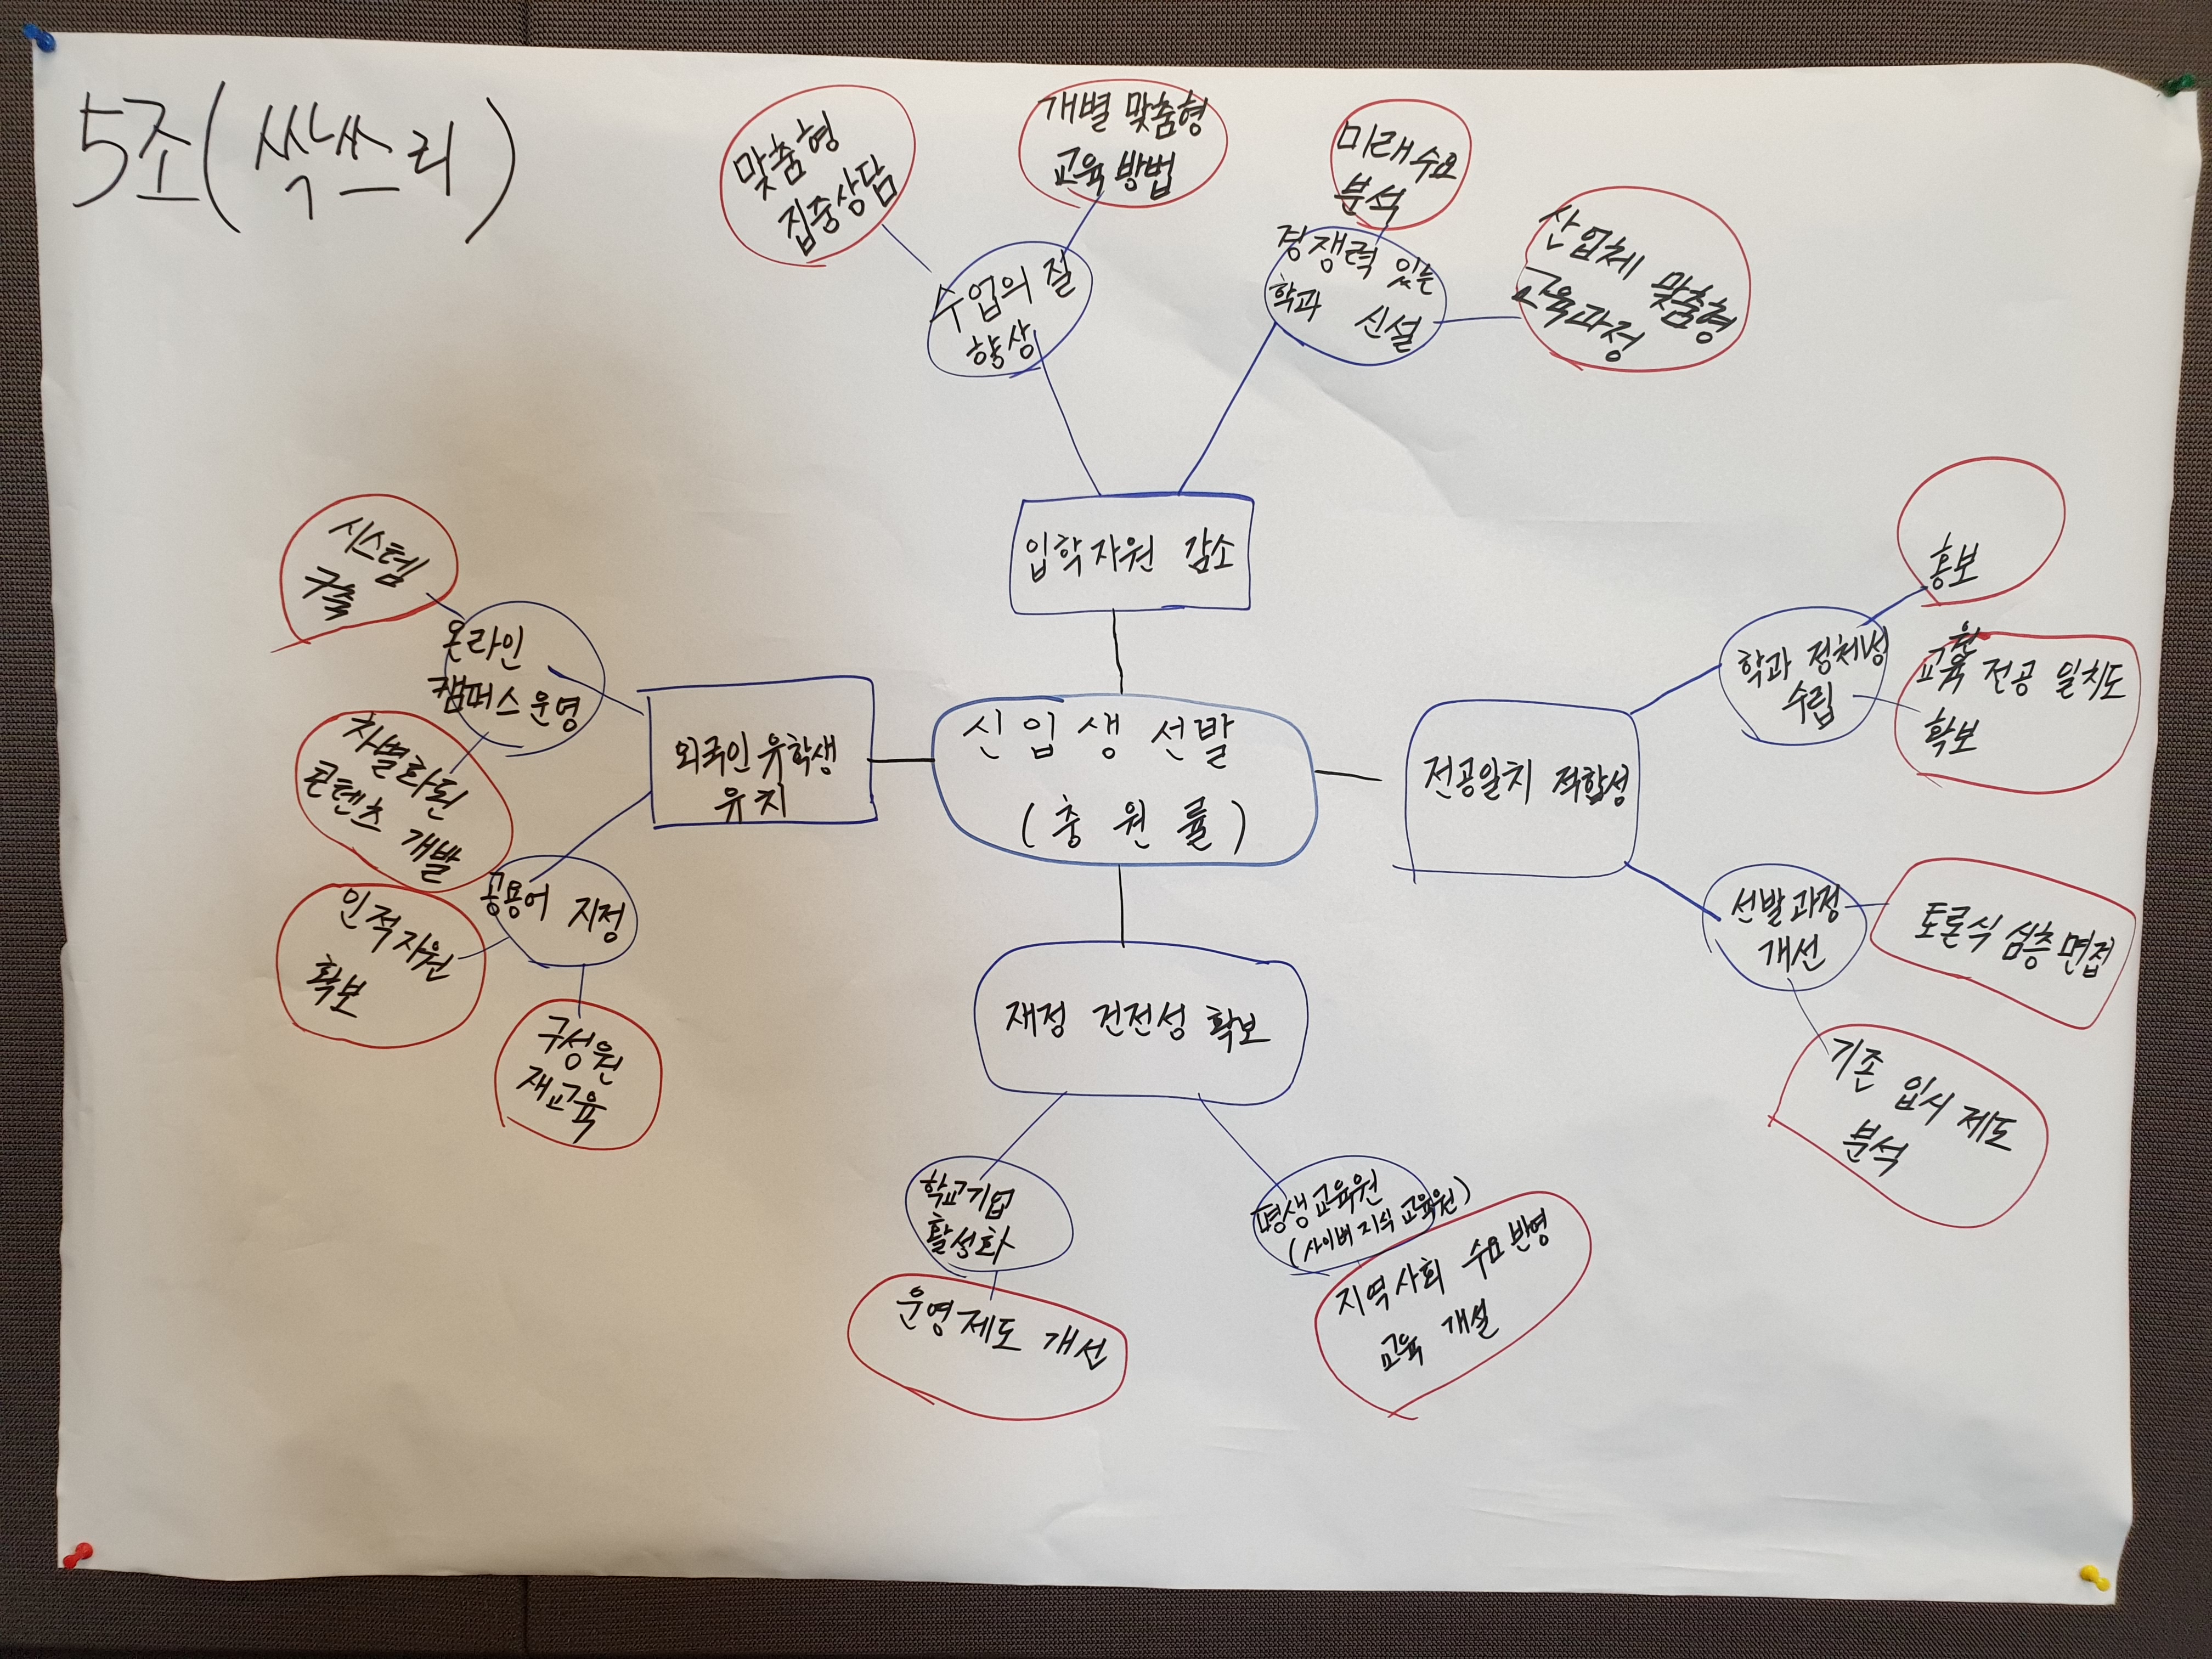 5조(싹쓰리)
맞춤형
집중상담
개별 맞춤형
교육 방법
미래수요
분석
산업체 맞춤형
교육과정
수업의 질
향상
경쟁력 있는
학과 신설
입학자원 감소
시스템
구축
온라인
캠퍼스 운영
차별화된
콘텐츠 개발
외국인 유학생
유치
공용어 지정
인적자원
확보
구성원
재교육
신입생 선발
(충원률)
전공일치 적합성
학과 정체성
수립
홍보
교육 전공 일치도
확보
선발과정
개선
토론식 심층면접
기존 입시 제도
분석
재정 건전성 확보
학교기업
활성화
운영제도 개선
평생교육원
(사이버 지식 교육원)
지역사회 수요 반영
교육 개설